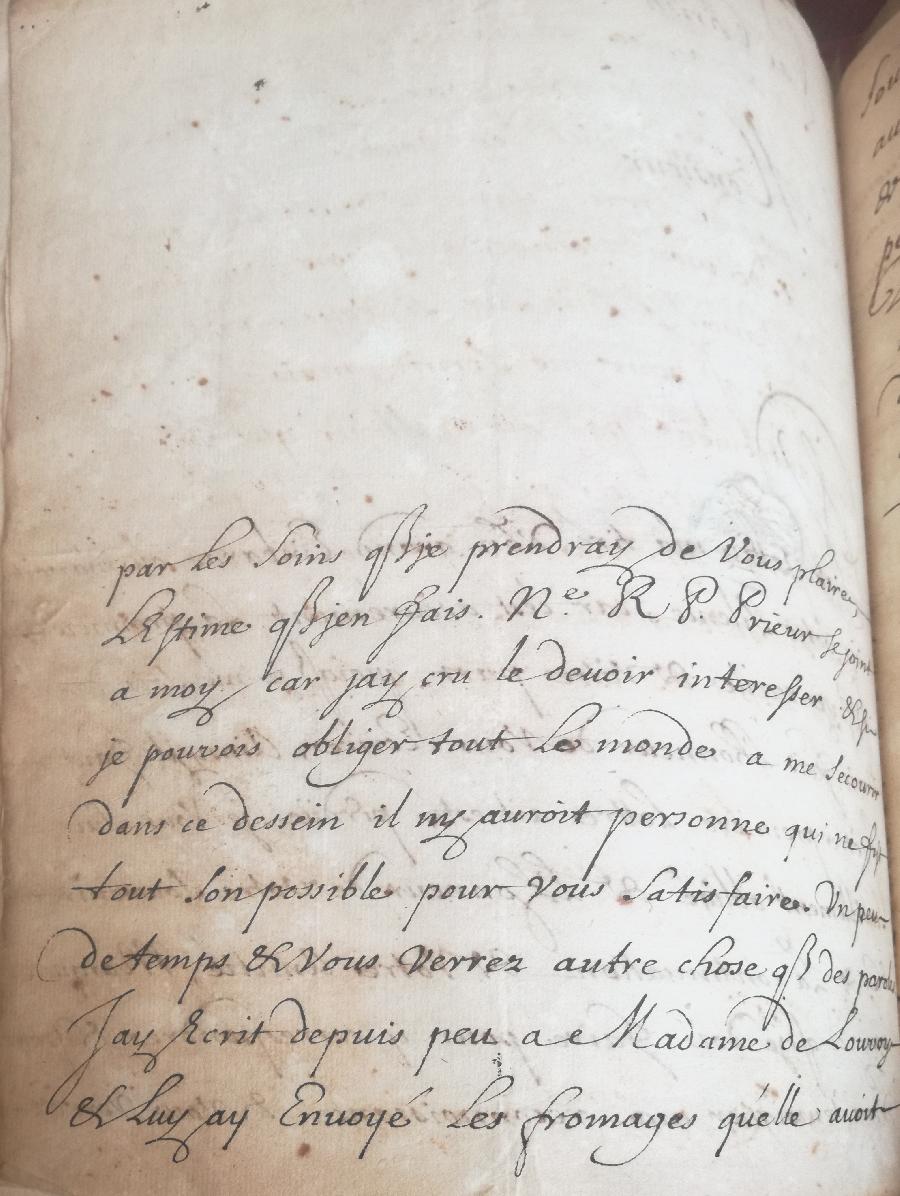 par les soins qß je prendray de Vous plaire,
LEstime qß jen fais. Ne. R P. Prieur se joint
a moy, car jay cru le devoir interesser & si
je pouvois obliger tout le monde a me secourir
dans ce dessein il ny auroit personne qui ne fist
tout son possible pour Vous satisfaire. Un peu
de temps & Vous verrez autre chose qß des parolles
Jay Ecrit depuis peu a Madame de Louvoy
& Luy ay Envoyé les fromages qu'elle avoit